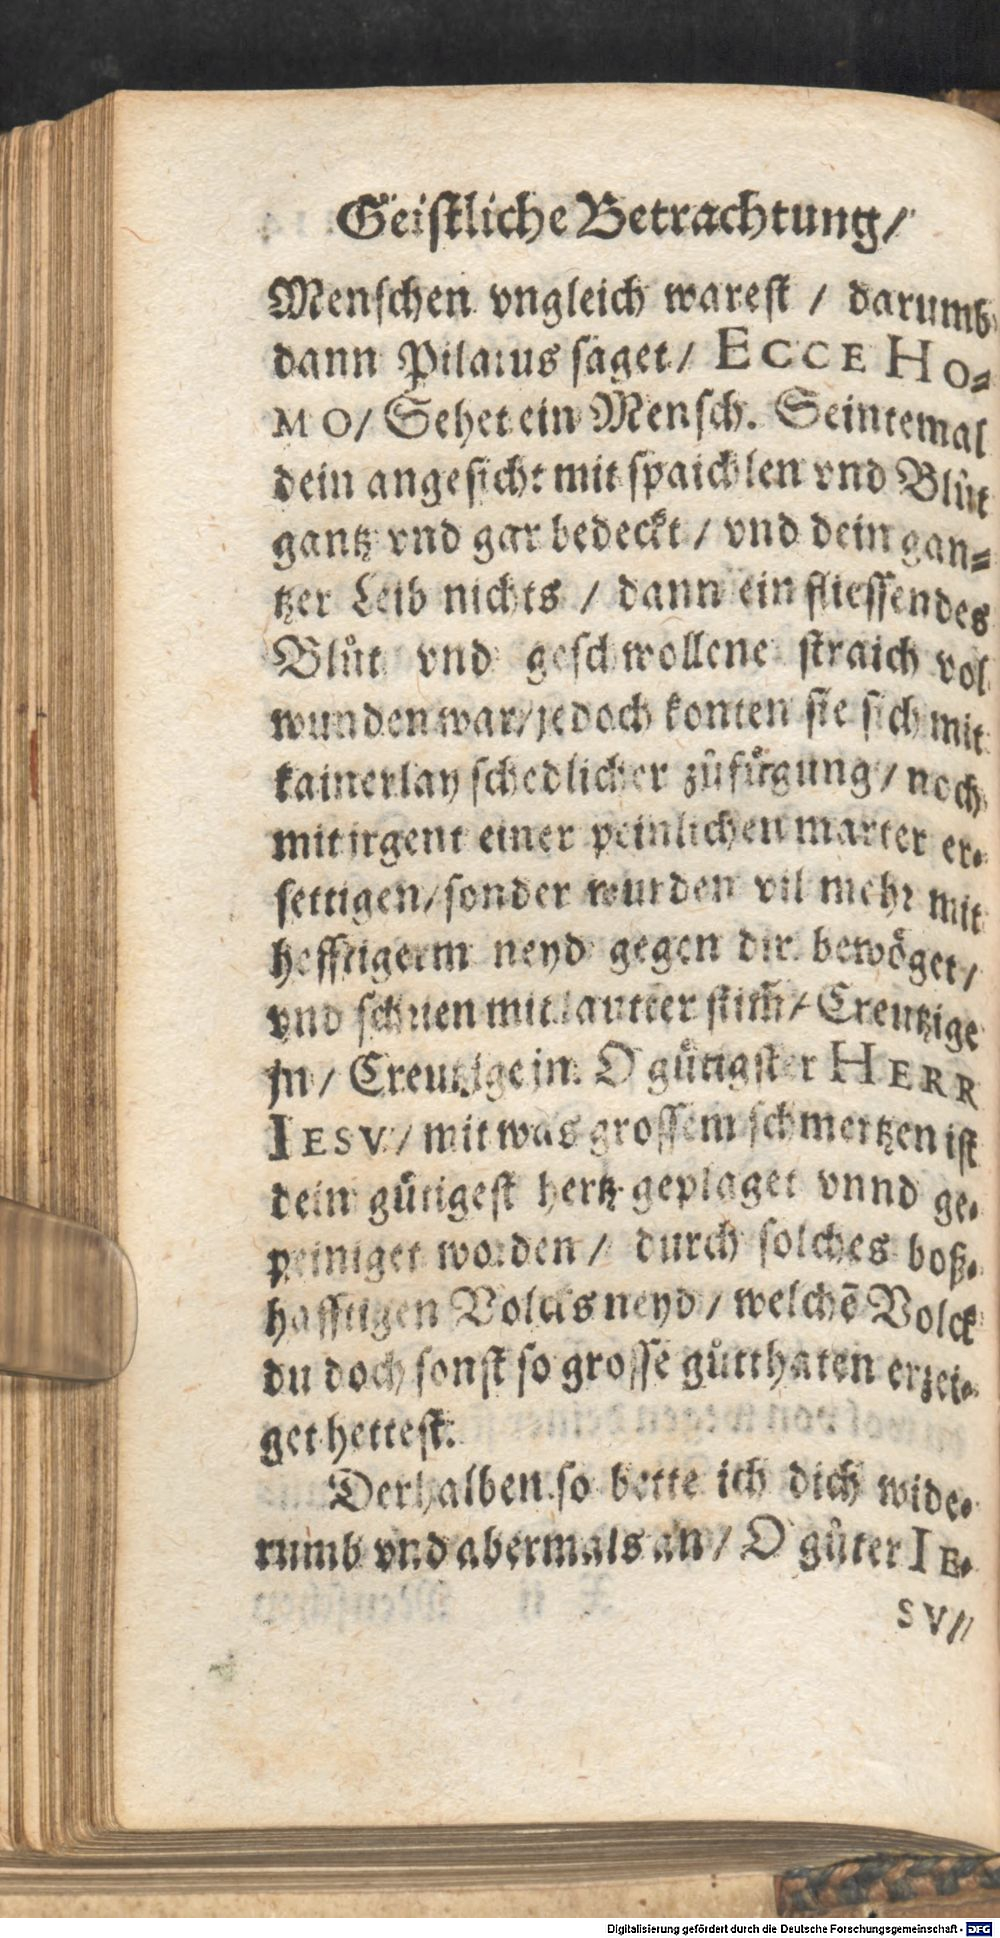 Geiſtliche Betrachtung/
Menſchen vngleich wareſt / darumb
dann Pilatus ſaget/ ECCE HO⸗
MO/ Sehet ein Menſch. Seintemal
dein angeſicht mit ſpaichlen vnd Blůt
gantz vnd gar bedeckt / vnd dein gan⸗
tzer Leib nichts / dann ein flieſſendes
Blůt vnd geſchwollene ſtraich vol
wunden war/ jedoch konten ſie ſich mit
kainerlay ſchedlicher zůfuͤgung / noch
mit jrgent einer peinlichen marter er⸗
ſettigen/ ſonder wurden vil mehr mit
hefftigerm neyd gegen dir bewoͤget/
vnd ſchrien mit lautter ſtim̃/ Creutzige
jn/ Creutzige jn. O guͤtigſter HERR
IESV/ mit was groſſem ſchmertzen iſt
dein guͤtigeſt hertz geplaget vnnd ge⸗
peiniget worden / durch ſolches boß⸗
hafftigen Volcks neyd / welchẽ Volck
du doch ſonſt ſo groſſe gůtthaten erzei⸗
get hetteſt.
Derhalben ſo bette ich dich wide⸗
rumb vnd abermals an / O gůter IE⸗
SV//
Digitalisierung gefördert durch die Deutsche Forschungsgemeinschaft - DFG